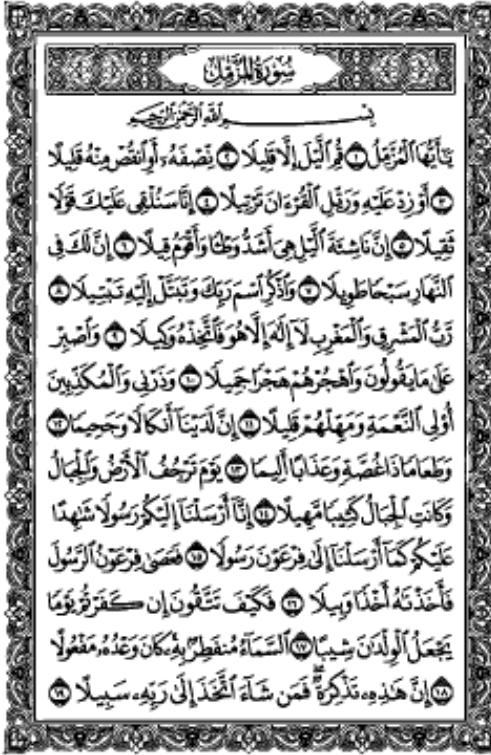 سُورَةُ المُزَّمِّلِ
بِسْمِ ٱللَّهِ ٱلرَّحْمَٰنِ ٱلرَّحِيمِ
يَٰٓأَيُّهَا ٱلْمُزَّمِّلُ ١ قُمِ ٱلَّيْلَ إِلَّا قَلِيلًا ٢ نِّصْفَهُۥٓ أَوِ ٱنقُصْ مِنْهُ قَلِيلًا
٣ أَوْ زِدْ عَلَيْهِ وَرَتِّلِ ٱلْقُرْءَانَ تَرْتِيلًا ٤ إِنَّا سَنُلْقِى عَلَيْكَ قَوْلًا
ثَقِيلًا ٥ إِنَّ نَاشِئَةَ ٱلَّيْلِ هِىَ أَشَدُّ وَطْـًٔا وَأَقْوَمُ قِيلًا ٦ إِنَّ لَكَ فِى
ٱلنَّهَارِ سَبْحًا طَوِيلًا ٧ وَٱذْكُرِ ٱسْمَ رَبِّكَ وَتَبَتَّلْ إِلَيْهِ تَبْتِيلًا ٨
رَّبُّ ٱلْمَشْرِقِ وَٱلْمَغْرِبِ لَآ إِلَٰهَ إِلَّا هُوَ فَٱتَّخِذْهُ وَكِيلًا ٩ وَٱصْبِرْ
عَلَىٰ مَا يَقُولُونَ وَٱهْجُرْهُمْ هَجْرًا جَمِيلًا ١٠ وَذَرْنِى وَٱلْمُكَذِّبِينَ
أُو۟لِى ٱلنَّعْمَةِ وَمَهِّلْهُمْ قَلِيلًا ١١ إِنَّ لَدَيْنَآ أَنكَالًا وَجَحِيمًا ١٢
وَطَعَامًا ذَا غُصَّةٍ وَعَذَابًا أَلِيمًا ١٣ يَوْمَ تَرْجُفُ ٱلْأَرْضُ وَٱلْجِبَالُ
وَكَانَتِ ٱلْجِبَالُ كَثِيبًا مَّهِيلًا ١٤ إِنَّآ أَرْسَلْنَآ إِلَيْكُمْ رَسُولًا شَٰهِدًا
عَلَيْكُمْ كَمَآ أَرْسَلْنَآ إِلَىٰ فِرْعَوْنَ رَسُولًا ١٥ فَعَصَىٰ فِرْعَوْنُ ٱلرَّسُولَ
فَأَخَذْنَٰهُ أَخْذًا وَبِيلًا ١٦ فَكَيْفَ تَتَّقُونَ إِن كَفَرْتُمْ يَوْمًا
يَجْعَلُ ٱلْوِلْدَٰنَ شِيبًا ١٧ ٱلسَّمَآءُ مُنفَطِرٌۢ بِهِۦ كَانَ وَعْدُهُۥ مَفْعُولًا
١٨ إِنَّ هَٰذِهِۦ تَذْكِرَةٌ ۖ فَمَن شَآءَ ٱتَّخَذَ إِلَىٰ رَبِّهِۦ سَبِيلًا ١٩